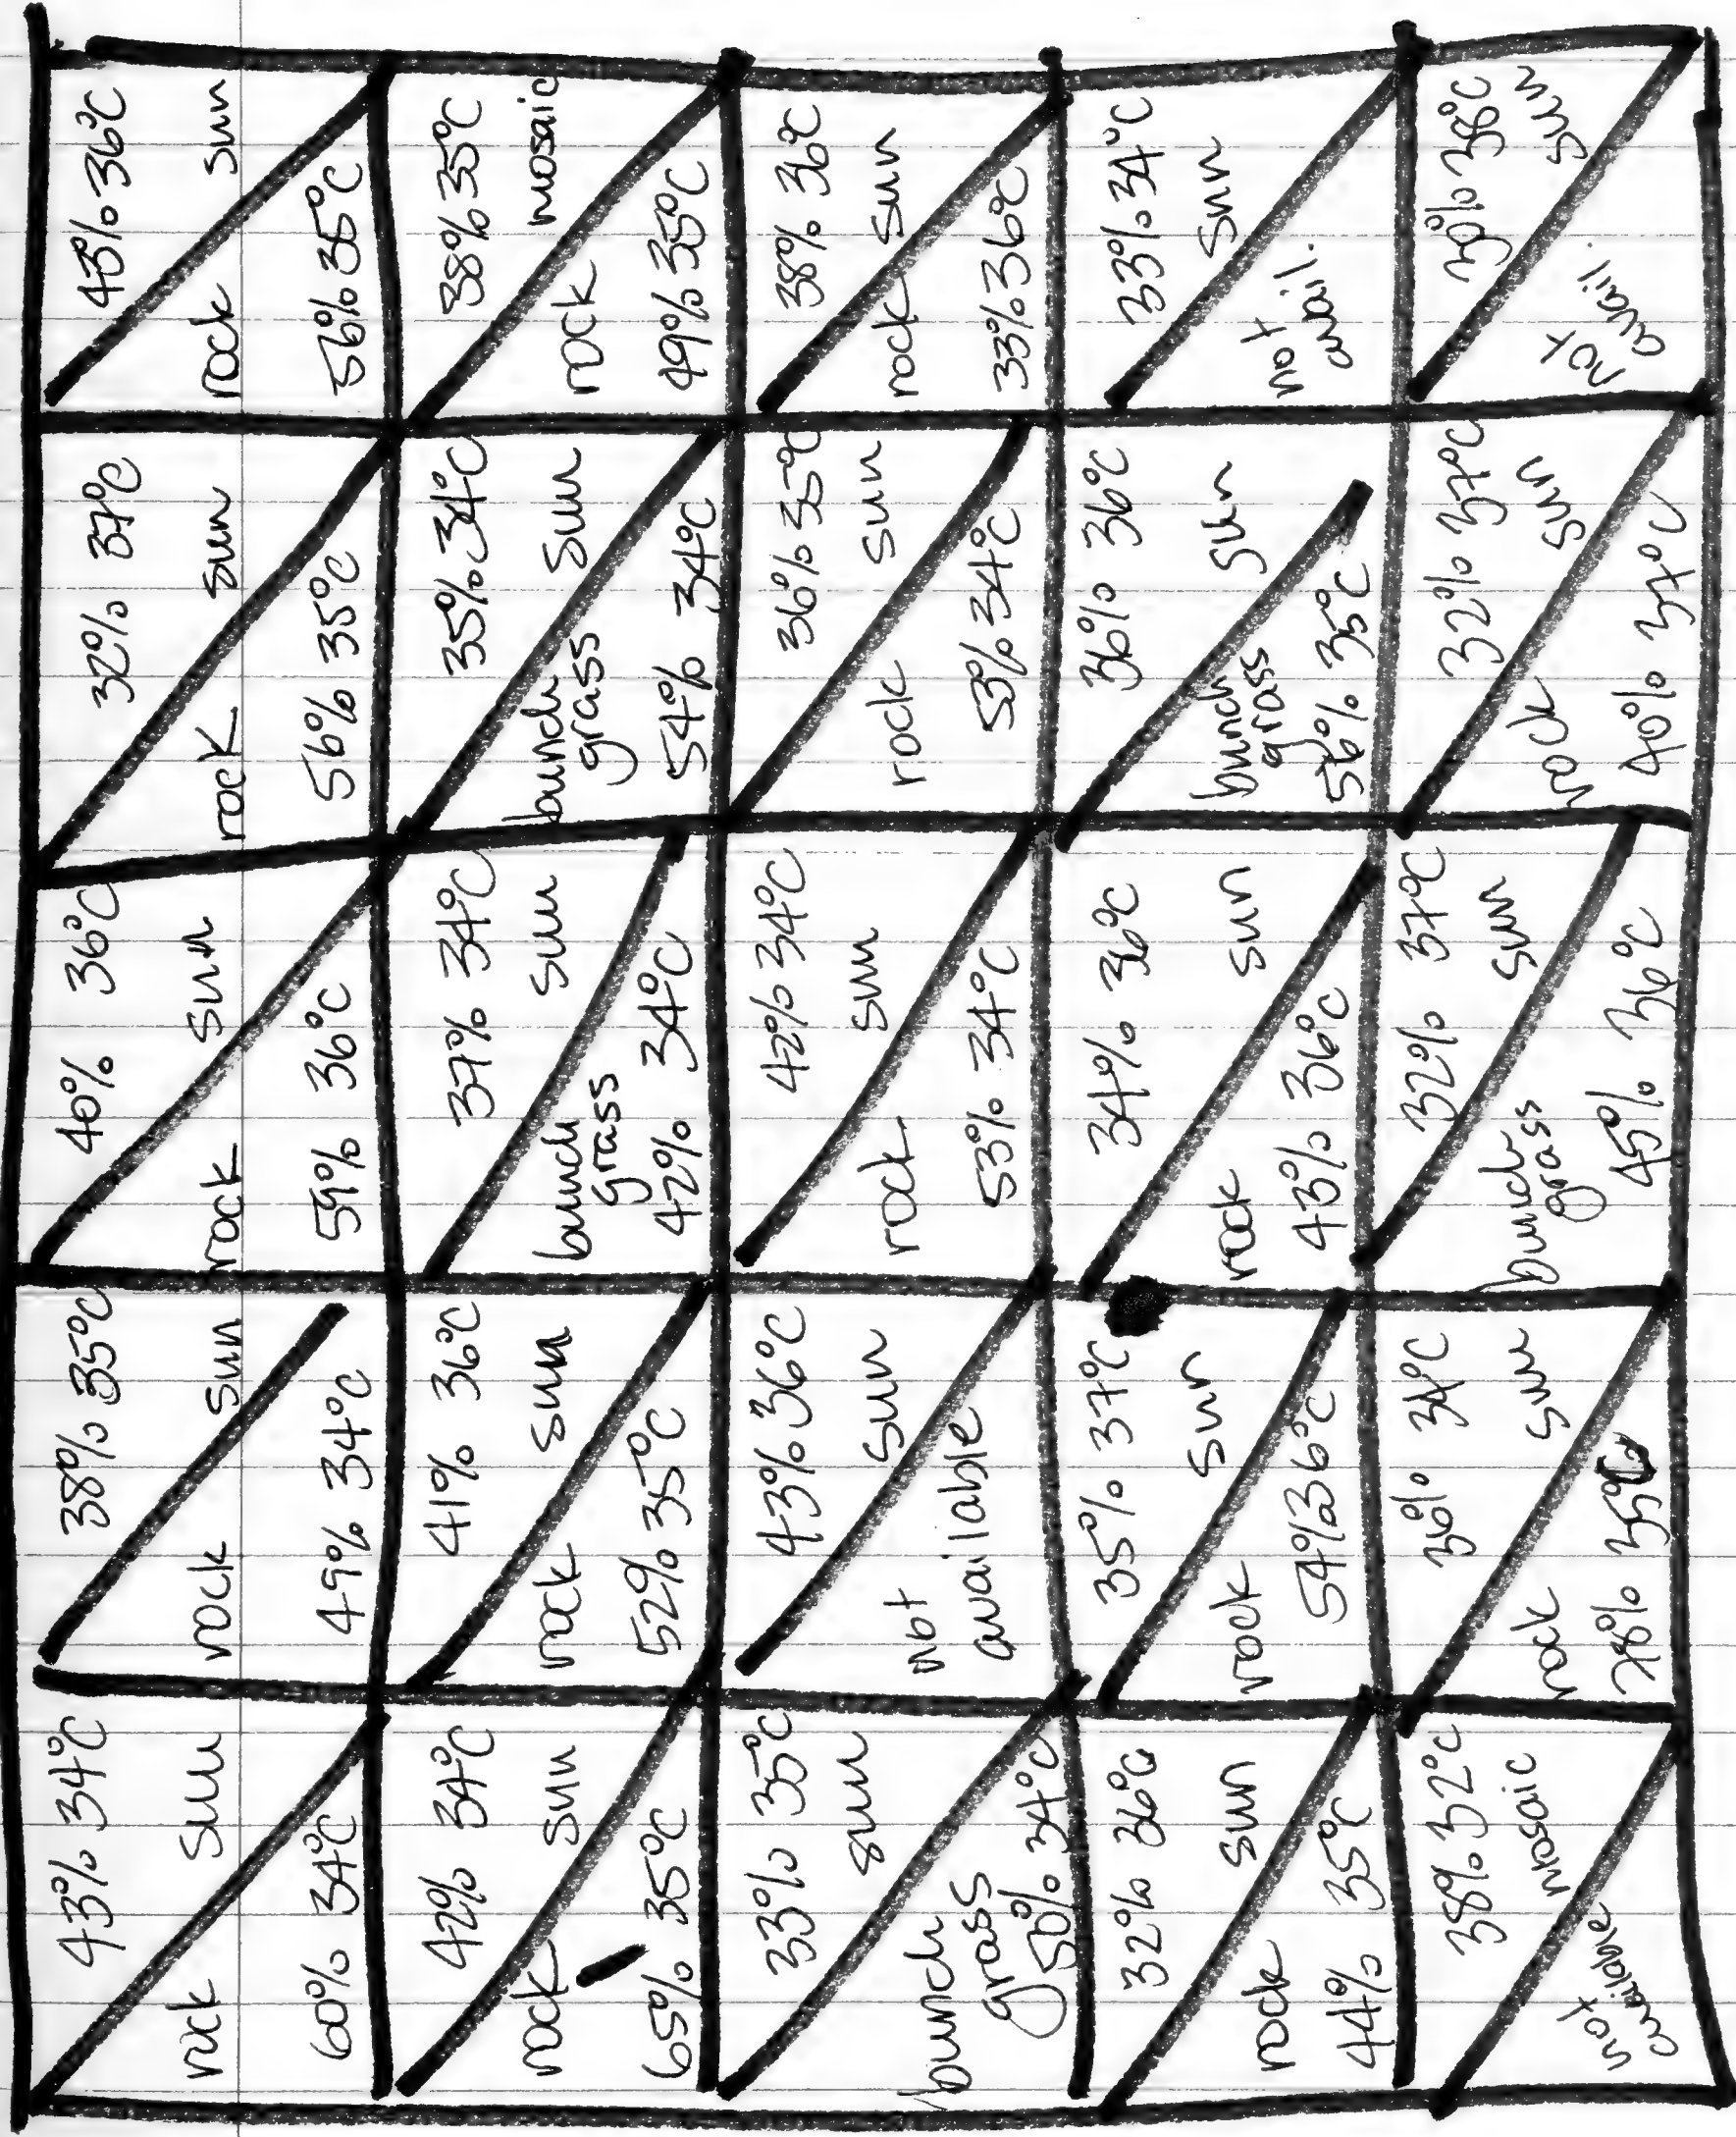 43% 34°C
sun
rock
60% 34°C
38% 35°C
sun
rock
49% 34°C
40% 36°C
sun
rock
59% 36°C
32% 37°C
sun
rock
56% 35°C
43% 36°C
sun
rock
56% 35°C
42% 34°C
sun
rock
65% 35°C
41% 36°C
sun
rock
52% 35°C
37% 34°C
sun
bunch
grass
42% 34°C
35% 34°C
sun
bunch
grass
54% 34°C
38% 35°C
mosaic
rock
49% 35°C
33% 35°C
sun
bunch
grass
50% 34°C
43% 36°C
sun
not
available
42% 34°C
sun
rock
53% 34°C
36% 35°C
sun
rock
53% 34°C
38% 36°C
sun
rock
33% 36°C
32% 36°C
sun
rock
44% 35°C
35% 37°C
sun
rock
54% 36°C
34% 36°C
sun
rock
43% 36°C
36% 36°C
sun
bunch
grass
56% 35°C
33% 34°C
sun
not
avail.
38% 32°C
mosaic
not
available
36% 34°C
sun
rock
35°C
32% 37°C
sun
bunch
grass
45% 36°C
32% 37°C
sun
rock
40% 37°C
30% 38°C
sun
not
avail.